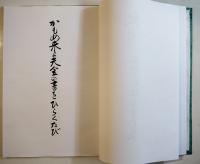 かもめ来よ天金の書をひらくたび